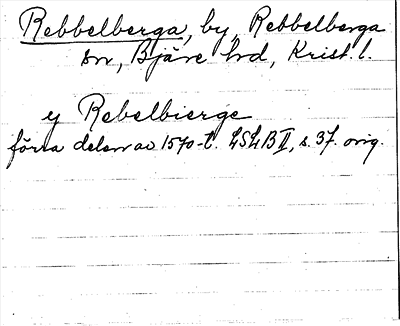 Rebbelberga, by, Rebbelberga
sn, Bjäre hd, Krist. l.
y Rebelbierge
förra delen av 1570-t. LSLB II, s. 37. orig.